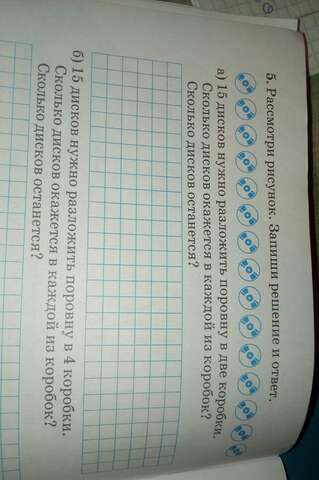 5. Рассмотри рисунок. Запиши решение и ответ.
а) 15 дисков нужно разложить поровну в две коробки.
Сколько дисков окажется в каждой из коробок?
Сколько дисков останется?
б) 15 дисков нужно разложить поровну в 4 коробки.
Сколько дисков окажется в каждой из коробок?
Сколько дисков останется?